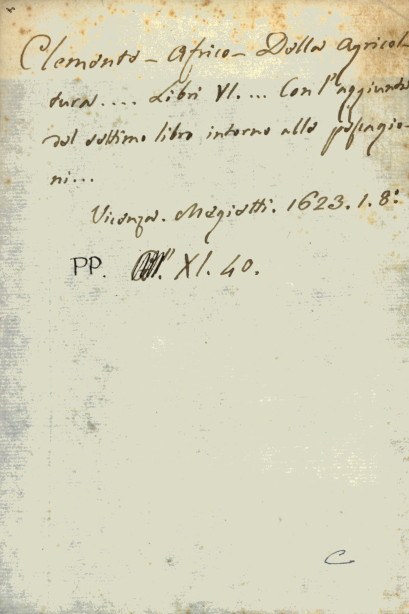 Clemente - Africo - Della Agricol-
tura.... Libri VI.... Con l'aggiunta
del settimo libro intorno alle possagio-
ni...
Vicenza. Megietti. 1623. 1. 8:
PP. XI. 40.
C